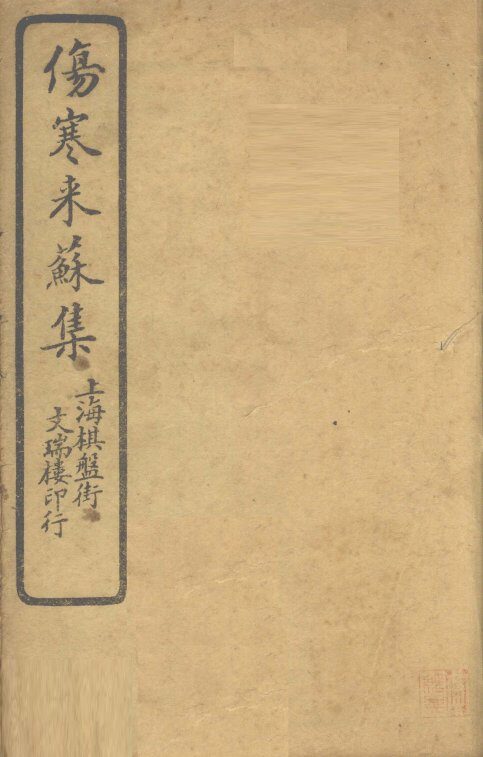 傷寒来蘇集
上海棋盤街
文瑞樓印行